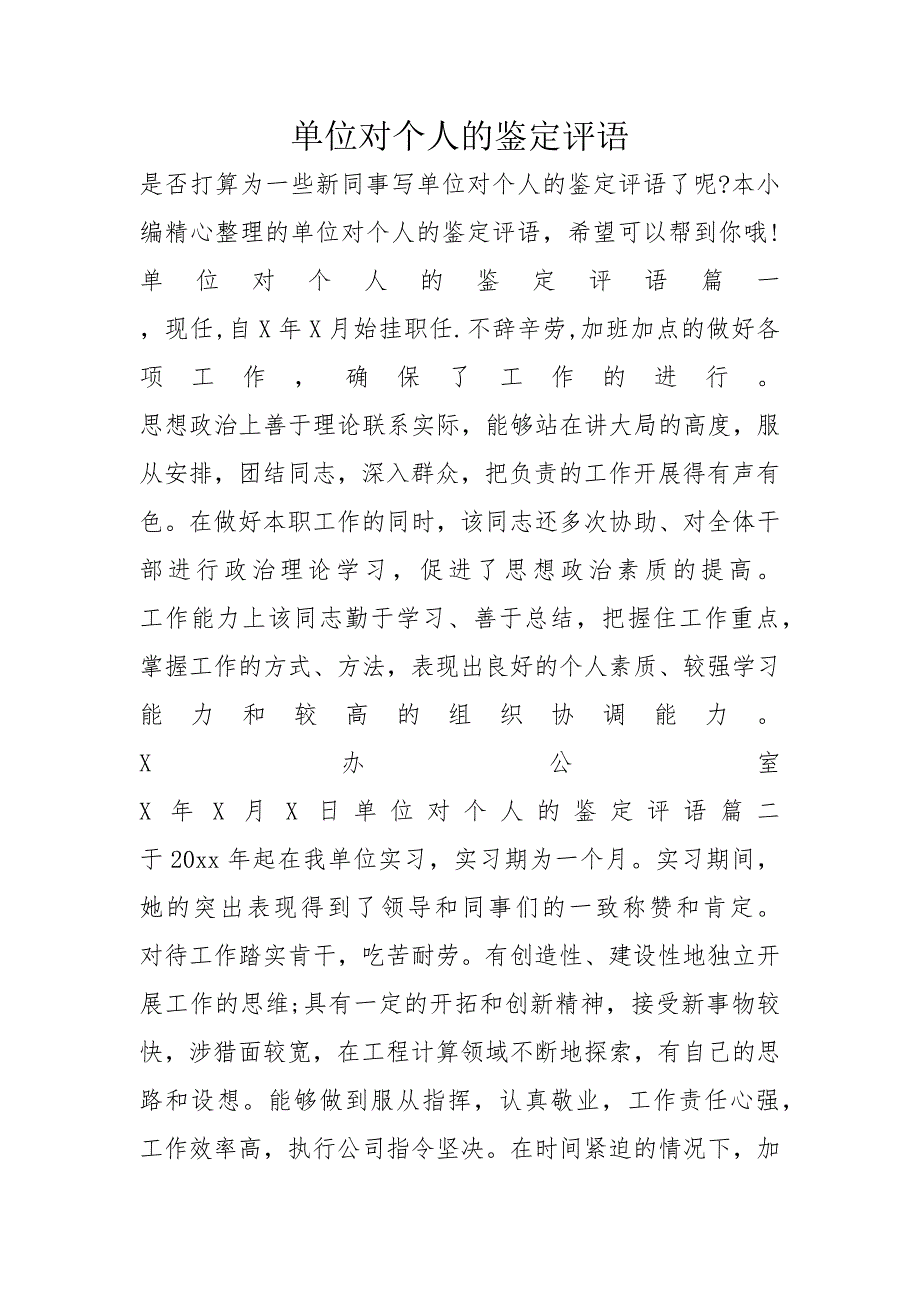 单位对个人的鉴定评语
是否打算为一些新同事写单位对个人的鉴定评语了呢?本小
编精心整理的单位对个人的鉴定评语，希望可以帮到你哦!
单位对个人的鉴定评语篇一
，现任,自 X 年 X 月始挂职任.不辞辛劳,加班加点的做好各
项工作，确保了工作的进行。
思想政治上善于理论联系实际，能够站在讲大局的高度，服
从安排，团结同志，深入群众，把负责的工作开展得有声有
色。在做好本职工作的同时，该同志还多次协助、对全体干
部进行政治理论学习，促进了思想政治素质的提高。
工作能力上该同志勤于学习、善于总结，把握住工作重点，
掌握工作的方式、方法，表现出良好的个人素质、较强学习
能力和较高的组织协调能力。
X 办公室
X 年 X 月 X 日单位对个人的鉴定评语篇二
于 20xx 年起在我单位实习，实习期为一个月。实习期间，
她的突出表现得到了领导和同事们的一致称赞和肯定。
对待工作踏实肯干，吃苦耐劳。有创造性、建设性地独立开
展工作的思维;具有一定的开拓和创新精神，接受新事物较
快，涉猎面较宽，在工程计算领域不断地探索，有自己的思
路和设想。能够做到服从指挥，认真敬业，工作责任心强，
工作效率高，执行公司指令坚决。在时间紧迫的情况下，加